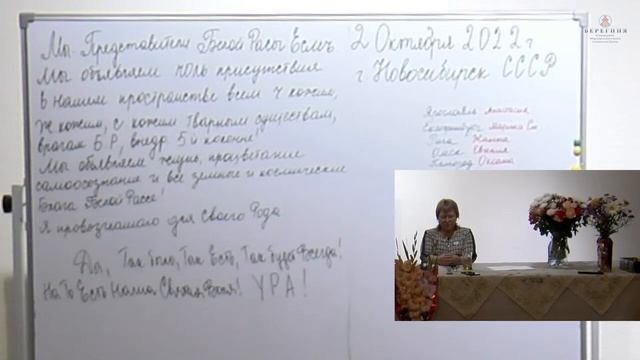 Мы Представители Бѣлой Расы Есмь
Мы объявляем ноль присутствия
в нашем пространстве всем ч кожим,
ж кожим, с кожим тварным существам,
врагам Б.Р, внедр. 5й колонне!
Мы объявляем жизнь, процветание
самоосознание и все земные и космические
блага Белой Расе!
Я провозглашаю для Своего Рода
Да, Так было, Так Есть, Так буде Всегда!
На То Есть Наша Святая Воля! УРА!
2 Октября 2022 г
г Новосибирск СССР
Ярославль Анастасия
Екатеринбург Марина См
Рига Жанна
Омск Евгения
Белгород Оксана
БЕРЕГИНЯ